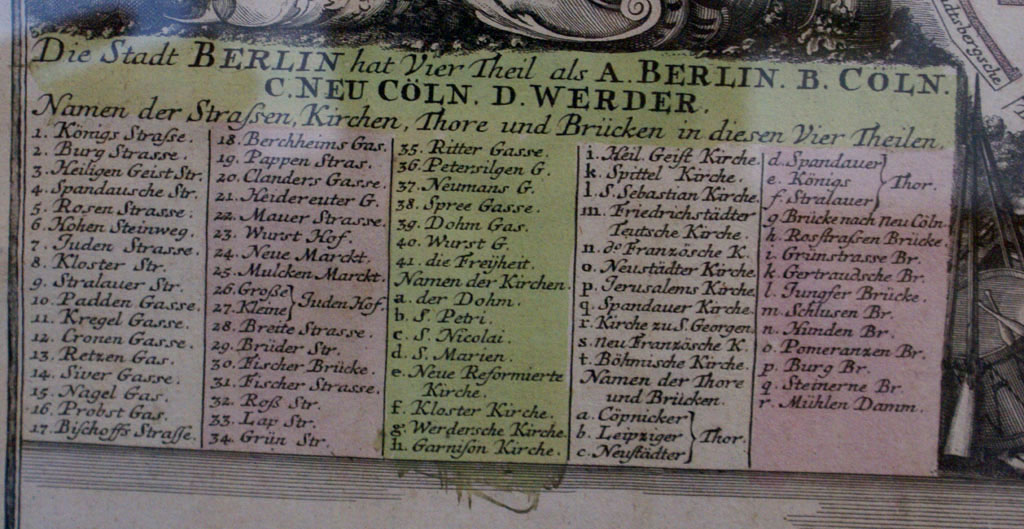 Die Stadt BERLIN hat Vier Theil als A. BERLIN. B. CÖLN.
C. NEU CÖLN. D. WERDER.
Namen der Straſsen, Kirchen, Thore und Brücken in diesen Vier Theilen.
1. Königs Straſse.
2. Burg Strasse.
3. Heiligen Geist Str.
4. Spandausche Str.
5. Rosen Strasse.
6. Hohen Steinweg.
7. Juden Strasse.
8. Kloster Str.
9. Stralauer Str.
10. Padden Gasse.
11. Kregel Gasse.
12. Cronen Gasse.
13. Retzen Gas.
14. Siver Gasse.
15. Nagel Gas.
16. Probst Gas.
17. Biſchoffs Straſſe.
18. Berchheims Gas.
19. Pappen Stras.
20. Clanders Gasse.
21. Heidereuter G.
22. Mauer Strasse.
23. Wurst Hof.
24. Neue Marckt.
25. Mulcken Marckt.
26. Große
27. Kleine } Juden Hof.
28. Breite Strasse.
29. Brüder Str.
30. Fischer Brücke.
31. Fischer Strasse.
32. Roß Str.
33. Lap Str.
34. Grün Str.
35. Ritter Gasse.
36. Petersilgen G.
37. Neumans G.
38. Spree Gasse.
39. Dohm Gas.
40. Wurst G.
41. die Freÿheit.
Namen der Kirchen.
a. der Dohm.
b. S. Petri.
c. S. Nicolai.
d. S. Marien.
e. Neue Reformierte
Kirche.
f. Kloster Kirche.
g. Werdersche Kirche.
h. Garniſon Kirche.
i. Heil. Geiſt Kirche.
k. Spittel Kirche.
l. S. Sebastian Kirche.
m. Friedrichstädter
Teutsche Kirche.
n. do Französche K.
o. Neustädter Kirche.
p. Jerusalems Kirche.
q. Spandauer Kirche.
r. Kirche zu S. Georgen.
s. neu Französche K.
t. Böhmische Kirche.
Namen der Thore
und Brücken.
a. Cöpnicker
b. Leipziger } Thor.
c. Neuſtädter
d. Spandauer
e. Königs } Thor.
f. Stralauer
g. Brücke nach Neu Cöln.
h. Rosſtraſsen Brücke.
i. Grünstrasse Br.
k. Gertraudsche Br.
l. Jungfer Brücke.
m. Schlusen Br.
n. Hunden Br.
o. Pomeranzen Br.
p. Burg Br.
q. Steinerne Br.
r. Mühlen Damm.